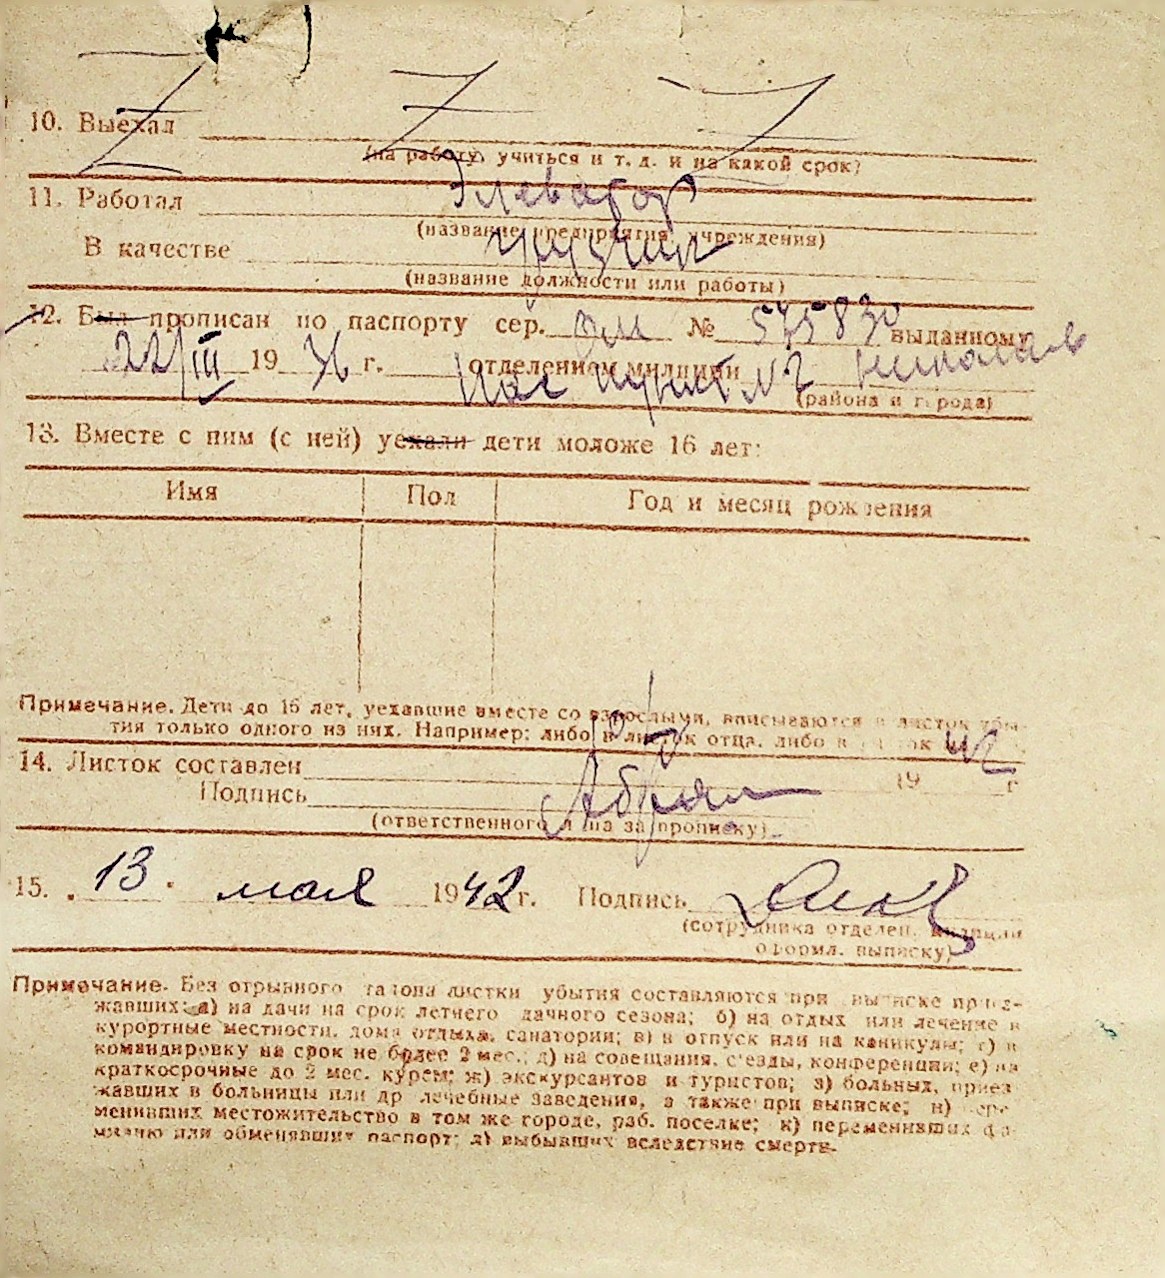 10. Выехал Z Z Z
(на работу, учиться и т. д. и на какой срок)
11. Работал Элеватор
(название предприятия, учреждения)
В качестве грузчик
(название должности или работы)
12. Был прописан по паспорту сер. № 575830 выданному
22/III 1936 г. отделением милиции № 2 Николаев
(района и города)
13. Вместе с ним (с ней) уехали дети моложе 16 лет:
Имя Пол Год и месяц рождения
Примечание. Дети до 16 лет, уехавшие вместе со взрослыми, вписываются в листок убы-
тия только одного из них. Например: либо в листок отца, либо в листок
14. Листок составлен 1942 г
Подпись
(ответственного лица за прописку)
15. 13. мая 1942 г. Подпись
(сотрудника отделен. милиции
оформл. выписку)
Примечание. Без отрывного талона листки убытия составляются при выписке приез-
жавших: а) на дачи на срок летнего дачного сезона; б) на отдых или лечение в
курортные местности, дома отдыха, санатории; в) в отпуск или на каникулы; г) в
командировку на срок не более 2 мес.; д) на совещания, съезды, конференции; е) на
краткосрочные до 2 мес. курсы; ж) экскурсантов и туристов; з) больных, приез
жавших в больницы или др лечебные заведения, а также при выписке; и) пере
менивших местожительство в том же городе, раб. поселке; к) переменивших фа-
милию или обменявших паспорт; л) выбывших вследствие смерти.